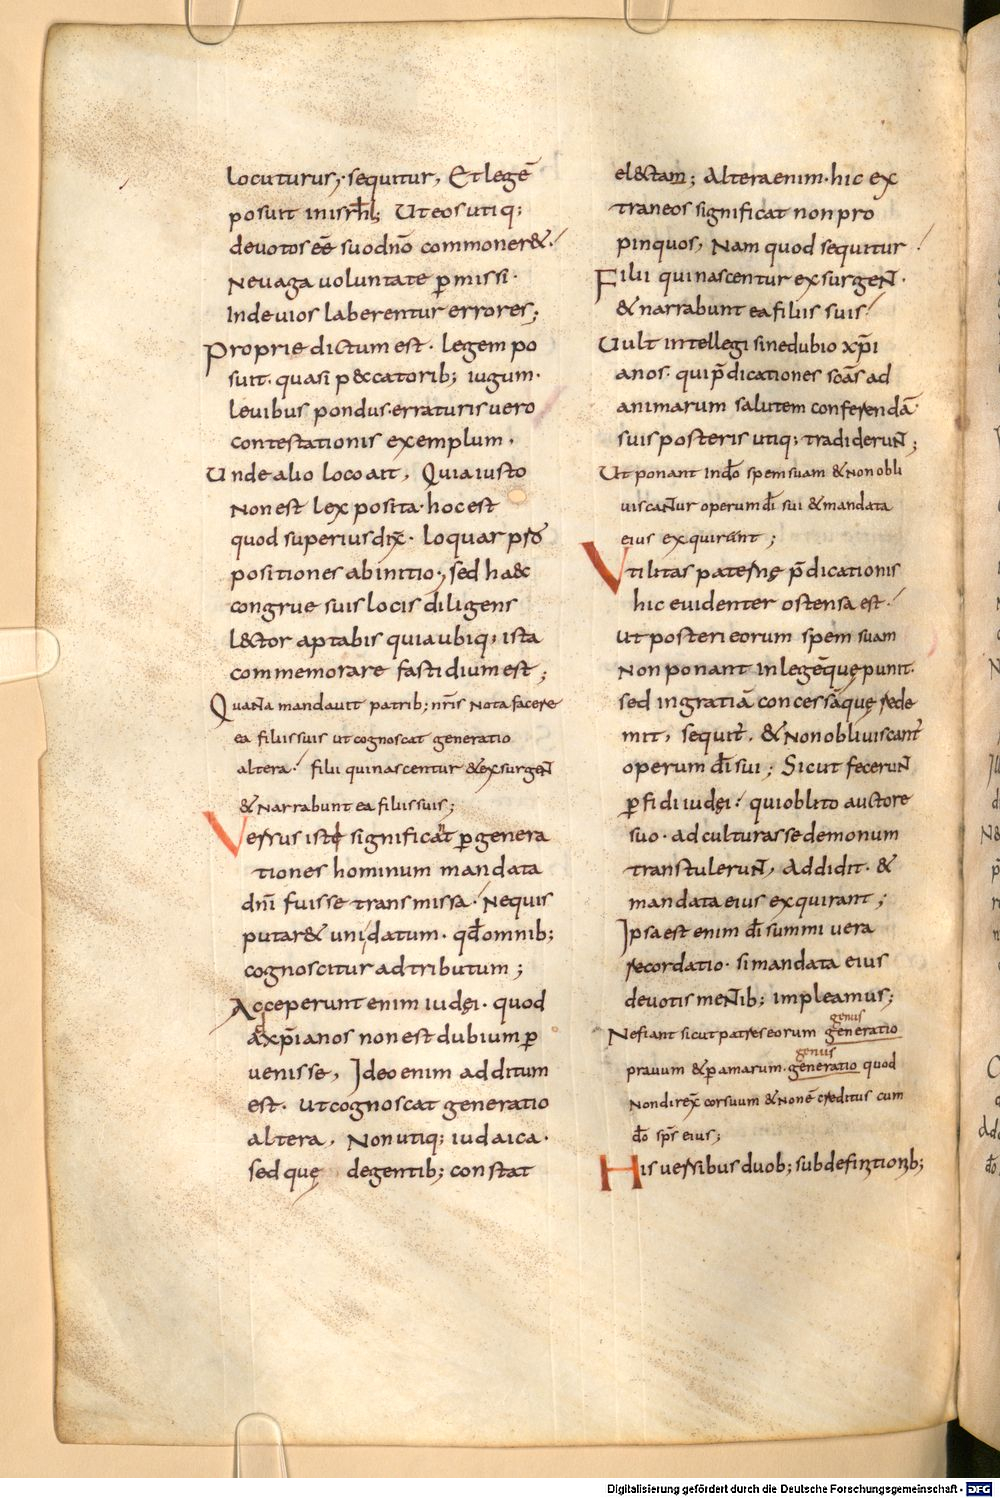 locuturus; sequitur, Et legē
posuit in isrɫ; Ut eos utiq;
devotos eē suo dn̄o commoner&.
Ne vaga voluntate ꝑmissi.
Inde vios laberentur errores;
Proprie dictum est. legem po
suit. quasi peccatorib; iugum.
levibus pondus. erraturis vero
contestationis exemplum.
Unde alio loco ait, Quia iusto
non est lex posita. hoc est
quod superius dix̄. loquar ꝓ
positiones ab initio; sed haec
congrue suis locis diligens
l&tor aptabis quia ubiq; ista
commemorare fastidium est;
Quanta mandavit patrib; nr̄is nota facere
ea filiis suis ut cognoscat generatio
altera. filii qui nascentur & exsurgent
& narrabunt ea filiis suis;
Versus iste significat ꝑ genera
tiones hominum mandata
dn̄i fuisse transmissa. Ne quis
putar& uni datum. qd̄ omnib;
cognoscitur adtributum;
Acceperunt enim iudęi. quod
ad xp̄ianos non est dubium ꝑ
venisse, Ideo enim additum
est. ut cognoscat generatio
altera, Non utiq; iudaica.
sed quę degentib; constat
el&tam; Altera enim. hic ex
traneos significat non pro
pinquos, Nam quod sequitur
Filii qui nascentur exsurgent.
& narrabunt ea filiis suis.
Vult intellegi sine dubio xp̄i
anos. qui p̄dicationes sc̄as ad
animarum salutem conferendā
suis posteris utiq; tradiderunt;
Ut ponant In dō spem suam & non obli
viscantur operum dī sui & mandata
eius exquirant;
Utilitas paternę p̄dicationis
hic evidenter ostensa est.
ut posteri eorum spem suam
non ponant in legē quę punit.
sed in gratiā concessā quę rede
mit, sequit̄. & non obliviscant̄
operum dī sui; Sicut fecerunt
ꝑfidi iudęi. qui oblito auctore
suo. ad culturas se demonum
transtulerunt, Addidit. &
mandata eius exquirant;
Ipsa est enim dī summi vera
recordatio. si mandata eius
devotis mentib; impleamus;
genus
Ne fiant sicut patres eorum generatio
genus
pravum & ꝑamarum. generatio quod
non direx̄ cor suum & non ē creditus cum
dō sps̄ eius;
His versibus duob; sub definitionib;
Digitalisierung gefördert durch die Deutsche Forschungsgemeinschaft - DFG